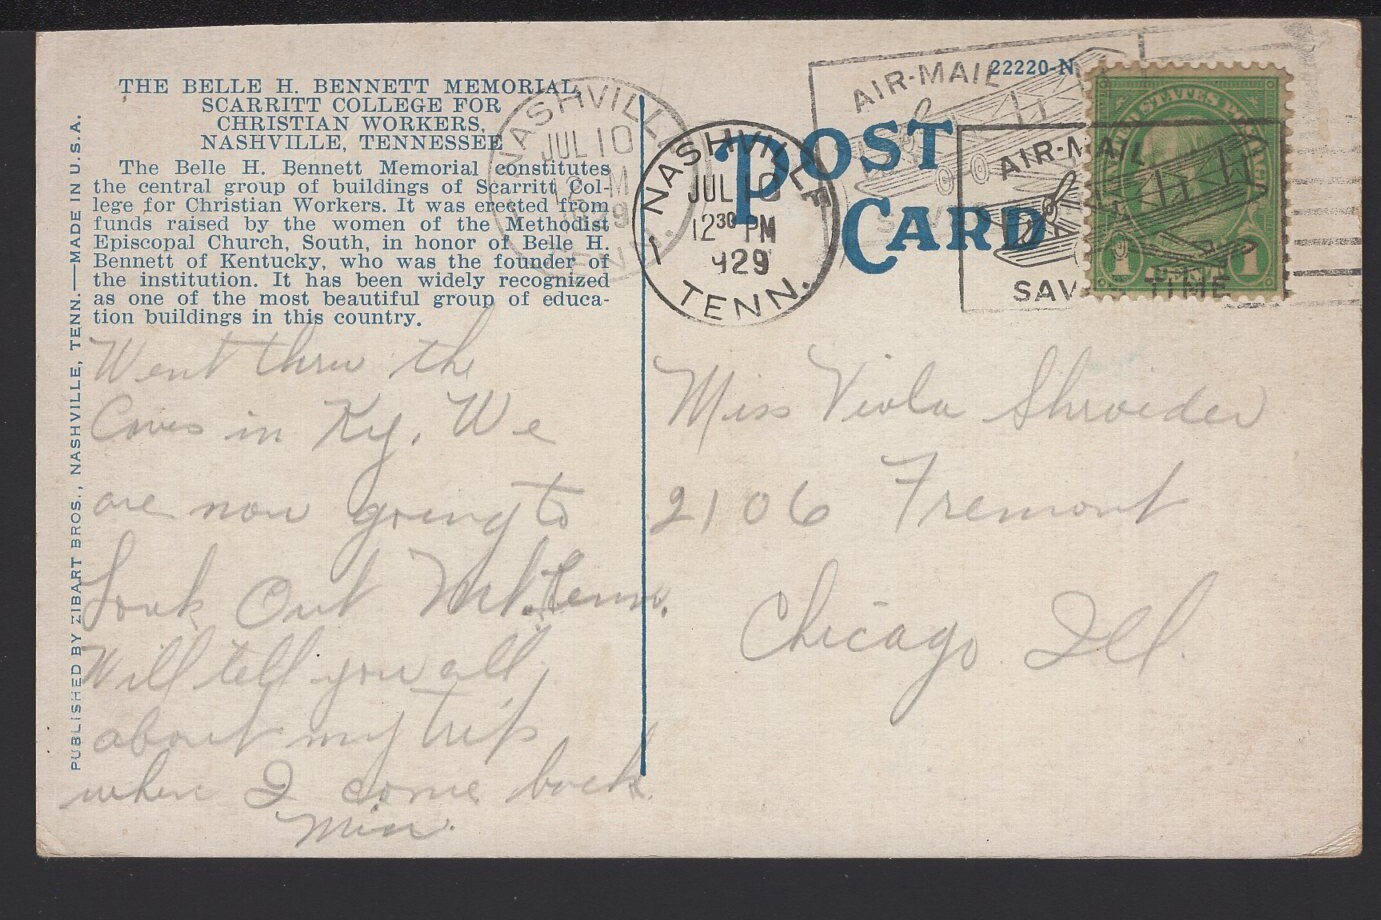 THE BELLE H. BENNETT MEMORIAL,
SCARRITT COLLEGE FOR
CHRISTIAN WORKERS,
NASHVILLE, TENNESSEE
The Belle H. Bennett Memorial constitutes
the central group of buildings of Scarritt Col-
lege for Christian Workers. It was erected from
funds raised by the women of the Methodist
Episcopal Church, South, in honor of Belle H.
Bennett of Kentucky, who was the founder of
the institution. It has been widely recognized
as one of the most beautiful group of educa-
tion buildings in this country.
PUBLISHED BY ZIBART BROS., NASHVILLE, TENN.—MADE IN U.S.A.
Went thru the
Caves in Ky. We
are now going to
Look Out Mt. Tenn.
Will tell you all
about my trip
when I come back
NASHVILLE
JUL 10
TENN.
NASHVILLE
JUL 10
12 30 PM
929
TENN.
AIR-MAIL
22220-N
AIR-MAIL
SAV
TIME
UNITED STATES POSTAGE
1 CENT 1
POST
CARD
Miss Viola Shroeder
2106 Fremont
Chicago Ill.